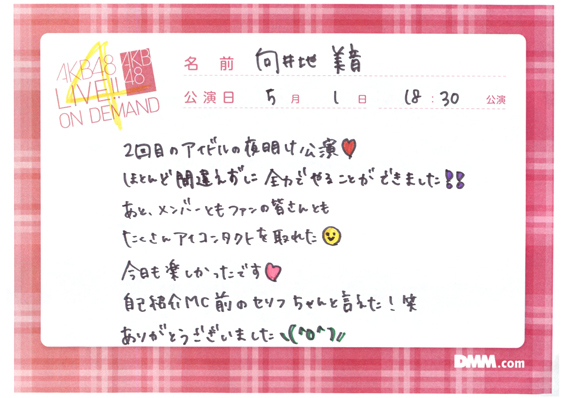 AKB48
LIVE!!
ON DEMAND
AKB
48
名前 向井地 美音
公演日 5月 1日 18:30 公演
2回目のアイドルの夜明け公演
ほとんど間違えずに全力でやることができました!!
あと、メンバーともファンの皆さんとも
たくさんアイコンタクトを取れた
今日も楽しかったです
自己紹介MC前のセリフちゃんと言えた!笑
ありがとうございました\(^o^)//
DMM.com